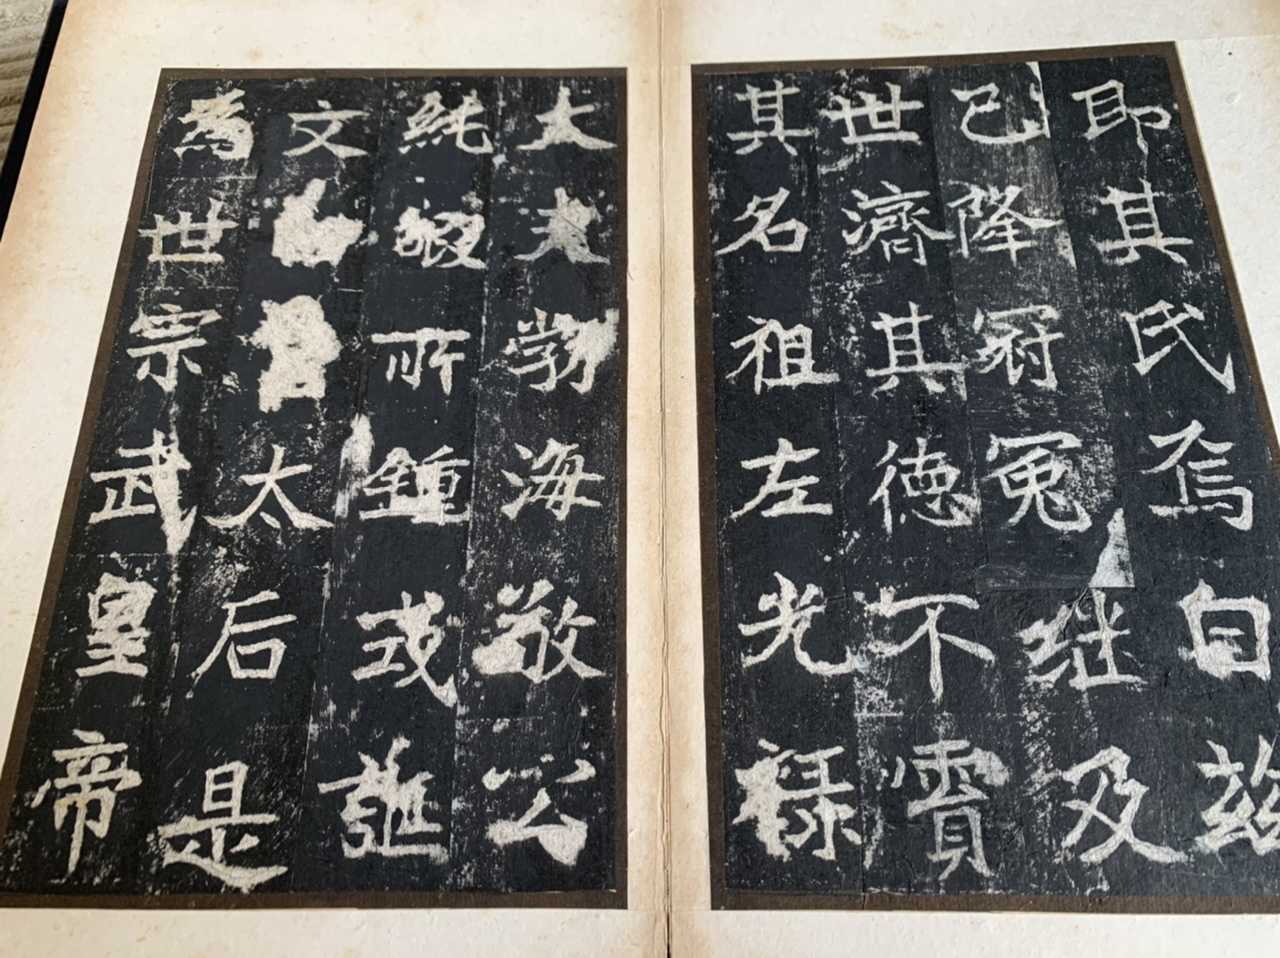 即其氏焉自茲
已降冠冕継及
世濟其德不霣
其名祖左光祿
大夫勃海敬公
純嘏所鍾式誕
文太后是
為世宗武皇帝